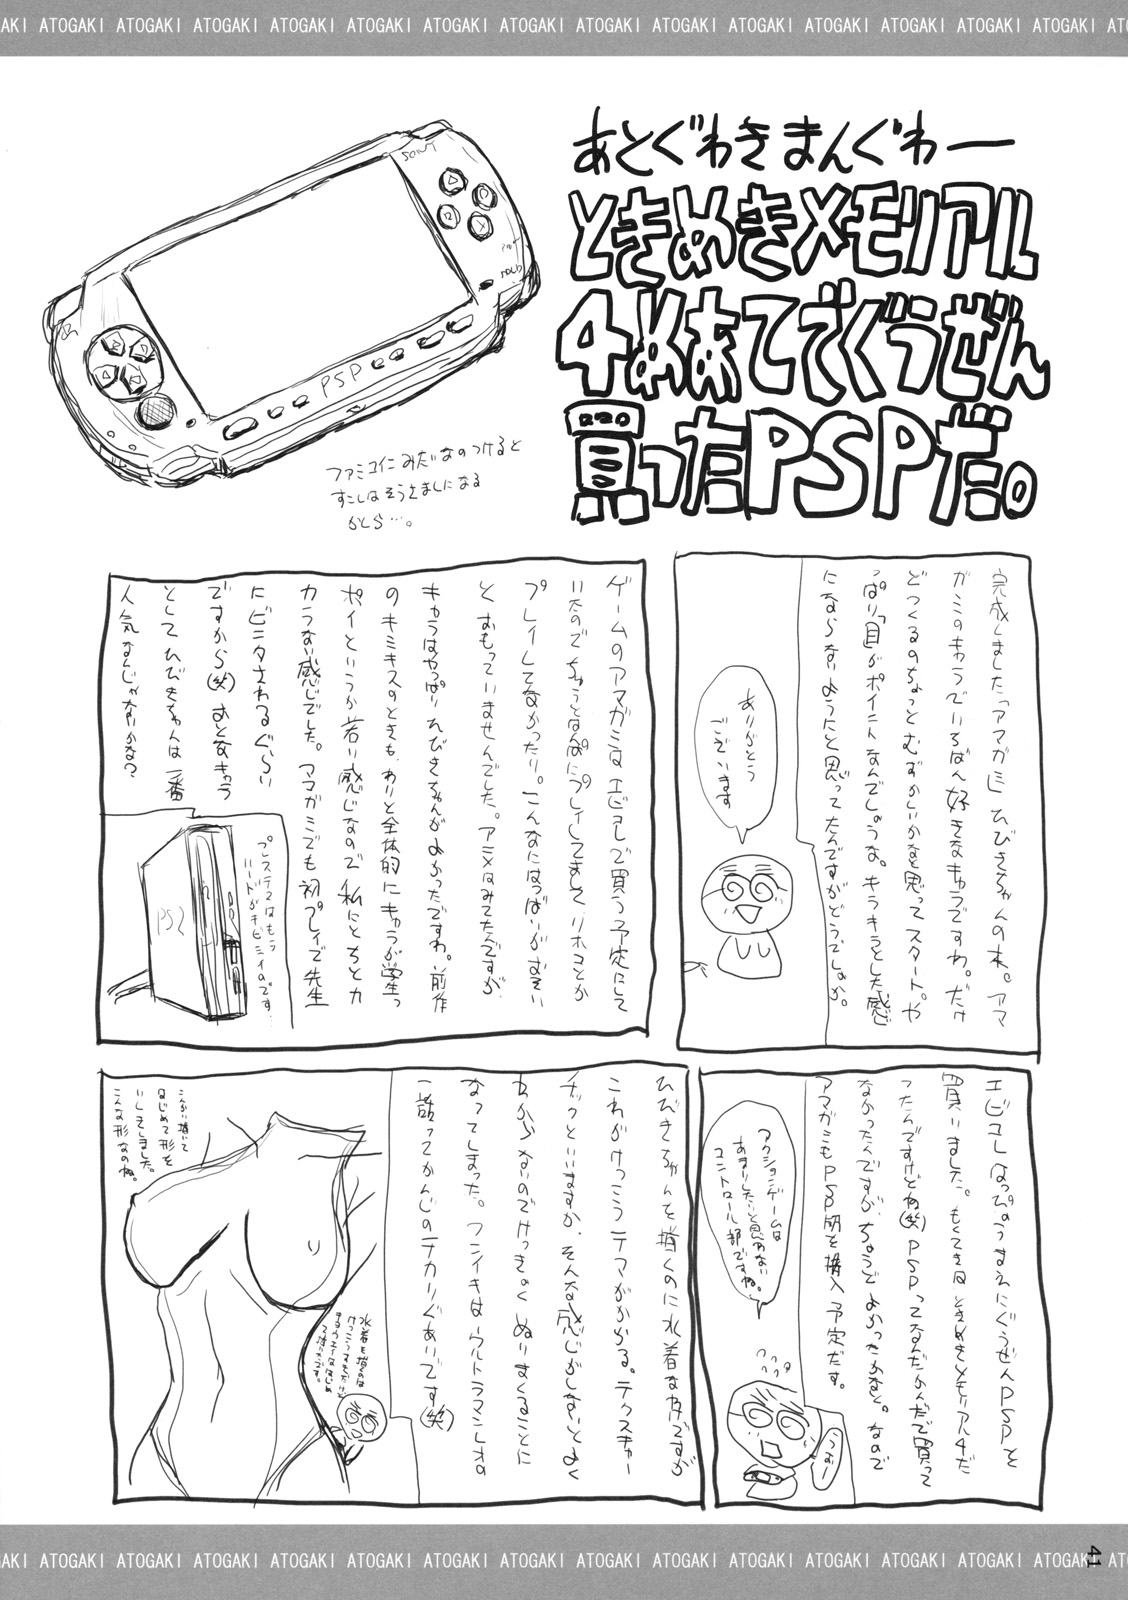 ATOGAKI ATOGAKI ATOGAKI ATOGAKI ATOGAKI ATOGAKI ATOGAKI ATOGAKI ATOGAKI ATOGAKI ATOGAKI ATOGAKI
あとぐわきまんぐわー
ときめきメモリアル
4めあてでぐうぜん
買ったPSPだ。
SONY
HOLD
PSP
ファミコンみたいなのつけると
すこしはそうさましになる
かしら…。
完成しました「アマガミ」ひびきちゃんの本。アマ
ガミのキャラでいちばん好きなキャラですわ。だけ
どつくるのちょっとむずかしいかなと思ってスタート。や
っぱり「目」がポイントなんでしょうな。キラキラとした感じ
にならないようにと思ってたんですがどうでしょか。
ありがとう
ございます
ゲームのアマガミはエビコレで買う予定にして
いたのでちゅうとはんぱにプレイしてまして、リホコとか
プレイしてなかったり。こんなにはつばいがおそい
とおもっていませんでした。アニメはみてたんですが、
キャラはやっぱりひびきちゃんがよかったですわ。前作
のキミキスのときも、わりと全体的にキャラが学生っ
ポイというか若い感じなので私にとちとカ
カらない感じでした。アマガミでも初プレイで先生
にビンタされるぐらい
ですから(笑)おとなキャラ
としてひびきちゃんは一番
人気なんじゃないかな?
プレステ2はもう
ハードがキビシイのです…
PS2
エビコレはっぴょうまえにぐうぜんPSPを
買いました。もくてきはときめきメモリアル4だ
ったんですけどね(笑)PSPってなんだかんだで買って
なかったんですが、ちょうどよかったかなと。なので
アマガミもPSP用を購入予定だす。
アクションゲームは
あまりしたいと思わない
コントロール部ですね。
ひびきちゃんを描くのに水着なんですが
これがけっこうテマがかかる。テクスチャー
チックといいますか、そんな感じがしないとよく
わからないのでけっきょくぬりまくることに
なってしまった。フンイキはウルトラマンレオの
1話ってかんじのテカリぐあいです(笑)
こんかい描いて
はじめて形を
いしきしました。
こんな形なのね。
ATOGAKI ATOGAKI ATOGAKI ATOGAKI ATOGAKI ATOGAKI ATOGAKI ATOGAKI ATOGAKI ATOGAKI ATOGAKI ATOGAKI
41